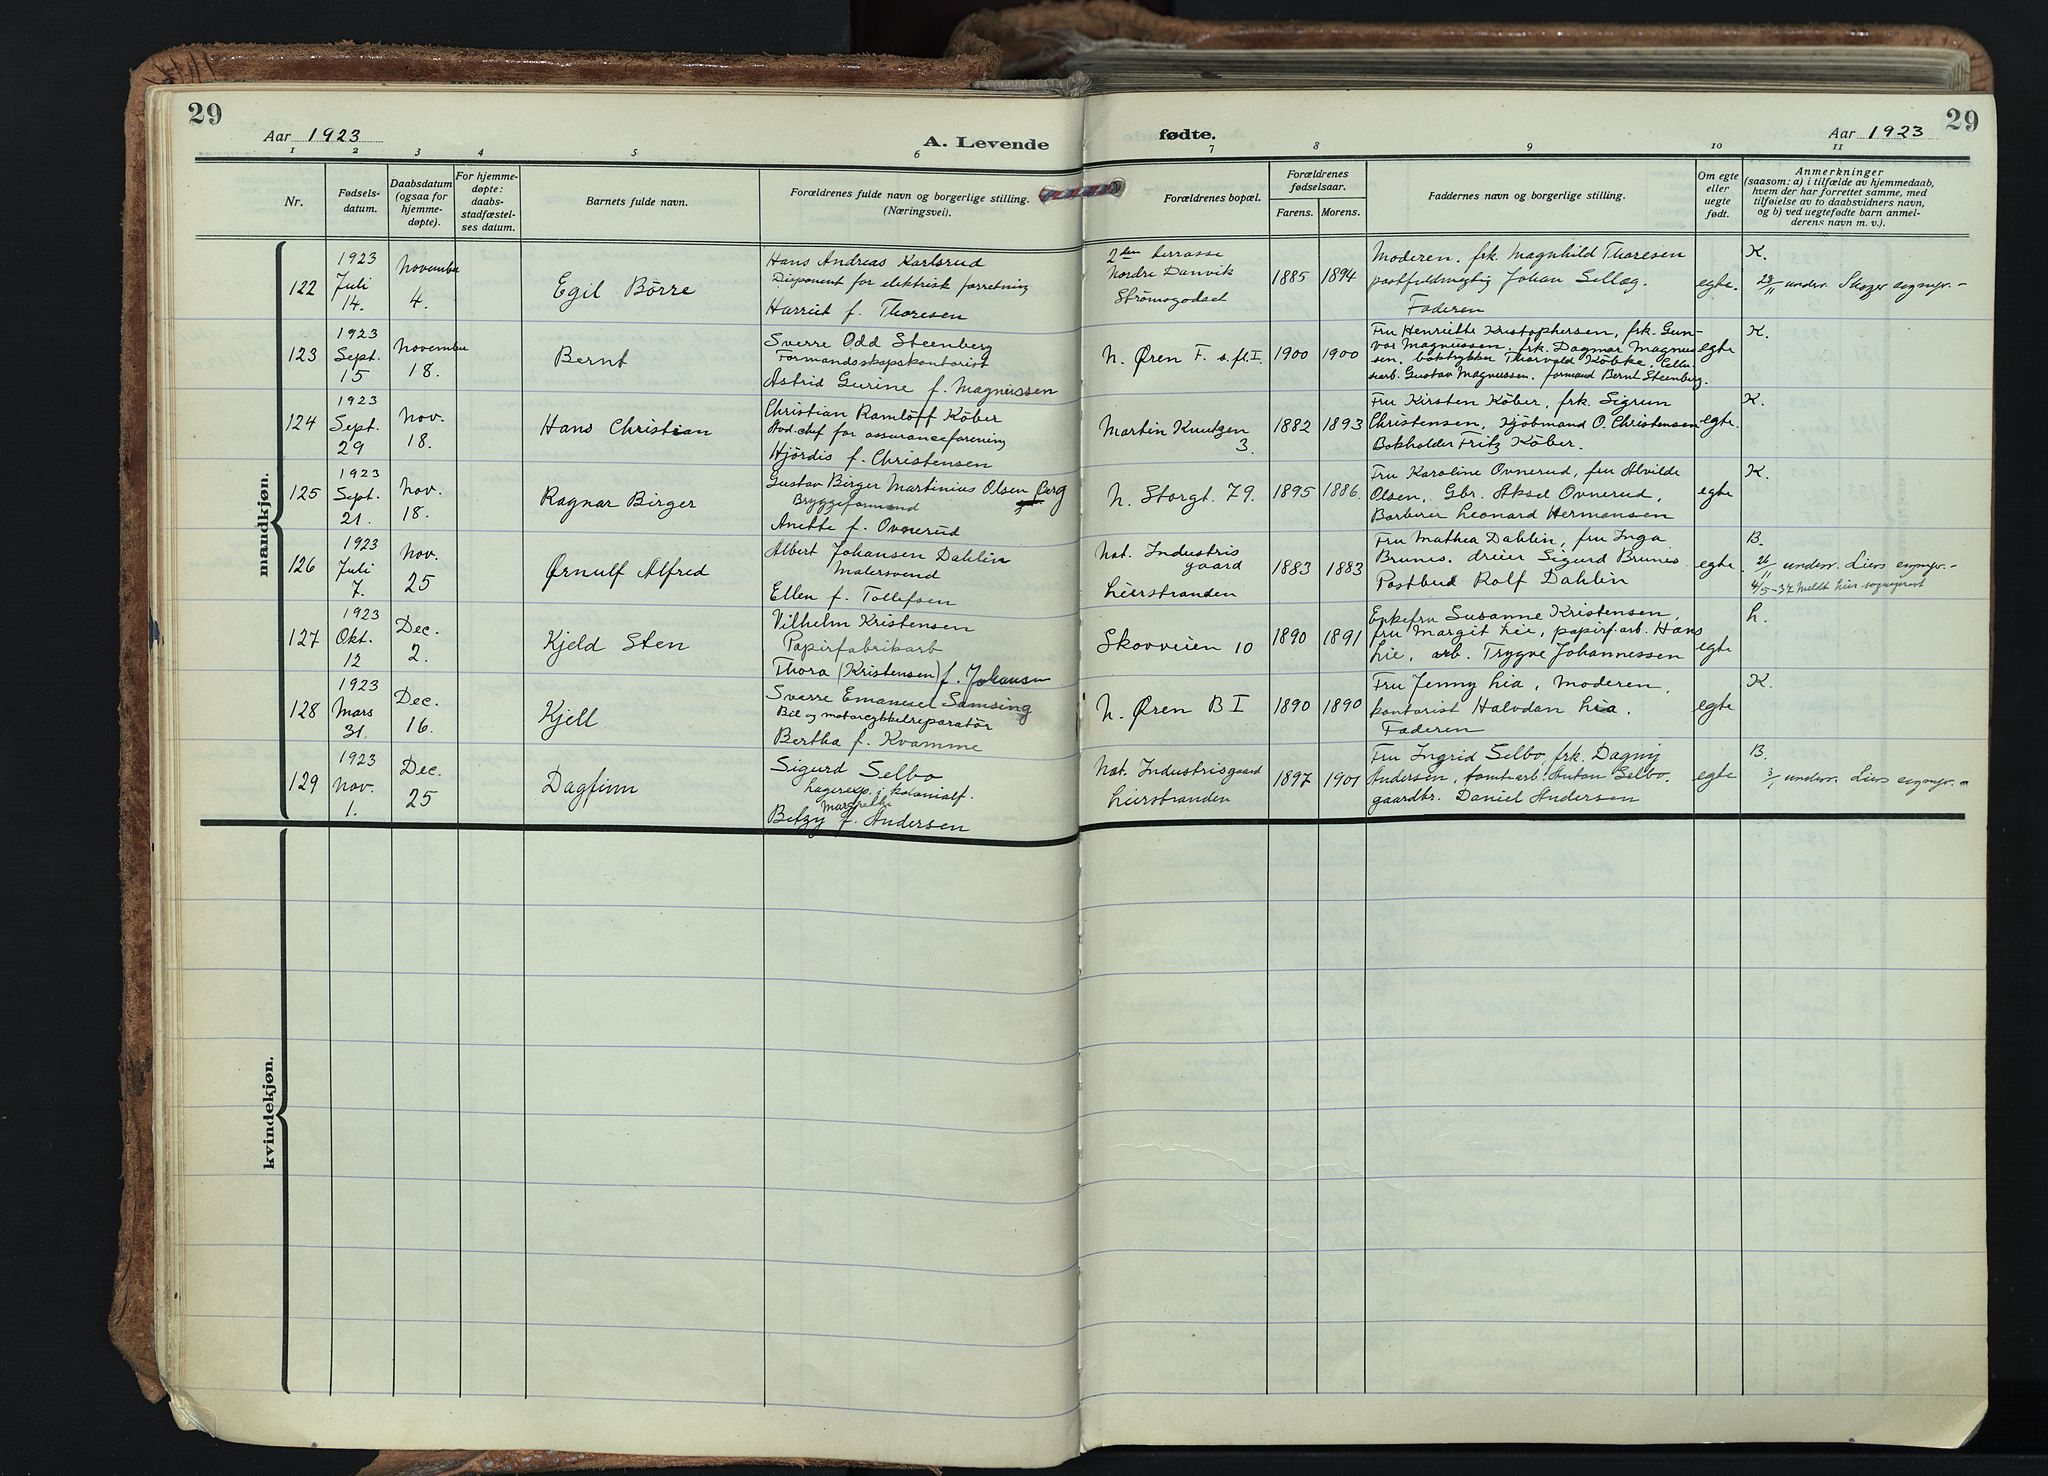 29
Aar 1923
A. Levende
fødte.
Aar 1923
29
1 2 3 4 5 6 7 8 9 10 11
Nr.
Fødsels-
datum.
Daabsdatum
(ogsaa for
hjemme-
døpte).
For hjemme-
døpte:
daabs-
stadfæstel-
ses datum.
Barnets fulde navn.
Forældrenes fulde navn og borgerlige stilling.
(Næringsvei).
Forældrenes bopæl.
Forældrenes
fødselsaar.
Farens. Morens.
Faddernes navn og borgerlige stilling.
Om egte
eller
uegte
født.
Anmerkninger
(saasom: a) i tilfælde av hjemmedaab,
hvem der har forrettet samme, med
tilføielse av to daabsvidners navn,
og b) ved uegtefødte barn anmel-
derens navn m. v.).
mandkjøn.
122
1923
Juli
14.
November
4.
Egil Börre
Hans Andreas Karlsrud
Disponent for elektrisk forretning
Harriet f. Thoresen
2den terrasse
Nordre Danvik
Strømsgodset
1885 1894
Moderen. frk Magnhild Thoresen
postfuldmægtig Johan Sellæg.
Faderen
egte.
K.
28/11 underr. Skoger sognepr.-
123
1923
Sept.
15
November
18.
Bernt
Sverre Odd Steenberg
Formandsskapskontorist
Astrid Gurine f. Magnussen
N. Øren F. s. fl. I.
1900 1900
Fru Henriette Kristophersen, frk. Gun-
vor Magnussen, frk. Dagmar Magnus-
sen, boktrykker Thorvald Köbke, Cellu-
losearb. Gustav Magnussen. formand Bernt Steenberg.
egte
K.
124
1923
Sept.
29
Nov.
18.
Hans Christian
Christian Ramlöff Köber
for assuranceforening
Hjördis f. Christensen
Martin Knutzen
3.
1882 1893
Fru Kirsten Köber, frk. Sigrun
Christensen, Kjöbmand O. Christensen
Bokholder Fritz Köber.
egte.
K.
125
1923
Sept.
21.
Nov.
18.
Ragnar Birger
Gustav Birger Martinius Olsen Berg
Bryggeformand
Anette f. Ovnerud
N. Storgt. 79.
1895 1886.
Fru Karoline Ovnerud, fru Alvilde
Olsen, Gbr. Aksel Ovnerud,
Barberer Leonard Hermansen
egte
K.
126
1923
Juli
7.
Nov.
25
Ørnulf Alfred
Albert Johansen Dahlin
Malersvend
Ellen f. Tollefsen
Nat. Industris
gaard
Lierstranden
1883 1883
Fru Mathea Dahlin, fru Inga
Brunes. dreier Sigurd Brunes
Postbud Rolf Dahlin
egte.
B.
26/11 underr. Liers sognepr.-
4/5-37 Meldt Lier sogneprest
127
1923
Okt.
12
Dec.
2.
Kjeld Sten
Vilhelm Kristensen
Papirfabrikarb
Thora (Kristensen) f. Johansen
Skovveien 10
1890 1891
Enkefru Susanne Kristensen,
fru Margit Lie, papirf.arb. Hans
Lie, arb. Trygve Johannessen
egte
L.
128
1923
Mars
31.
Dec.
16.
Kjell
Sverre Emanuel Samsing
Bil og motorcykkelreparatör
Bertha f. Kvamme
N. Øren B I
1890 1890
Fru Jenny Lia, Moderen,
kontorist Halvdan Lia.
Faderen
egte
K.
129
1923
Nov.
1.
Dec.
25
Dagfinn
Sigurd Selbo
Lagerexp. i kolonialf.
Betzy f. Andersen
Nat. Industrisgaard
Lierstranden
1897 1901
Fru Ingrid Selbo, frk. Dagny
Andersen, tomtarb. Anton Selbo.
gaardbr. Daniel Andersen
egte
B.
3/1 underr. Liers sognepr.-
kvindekjøn.